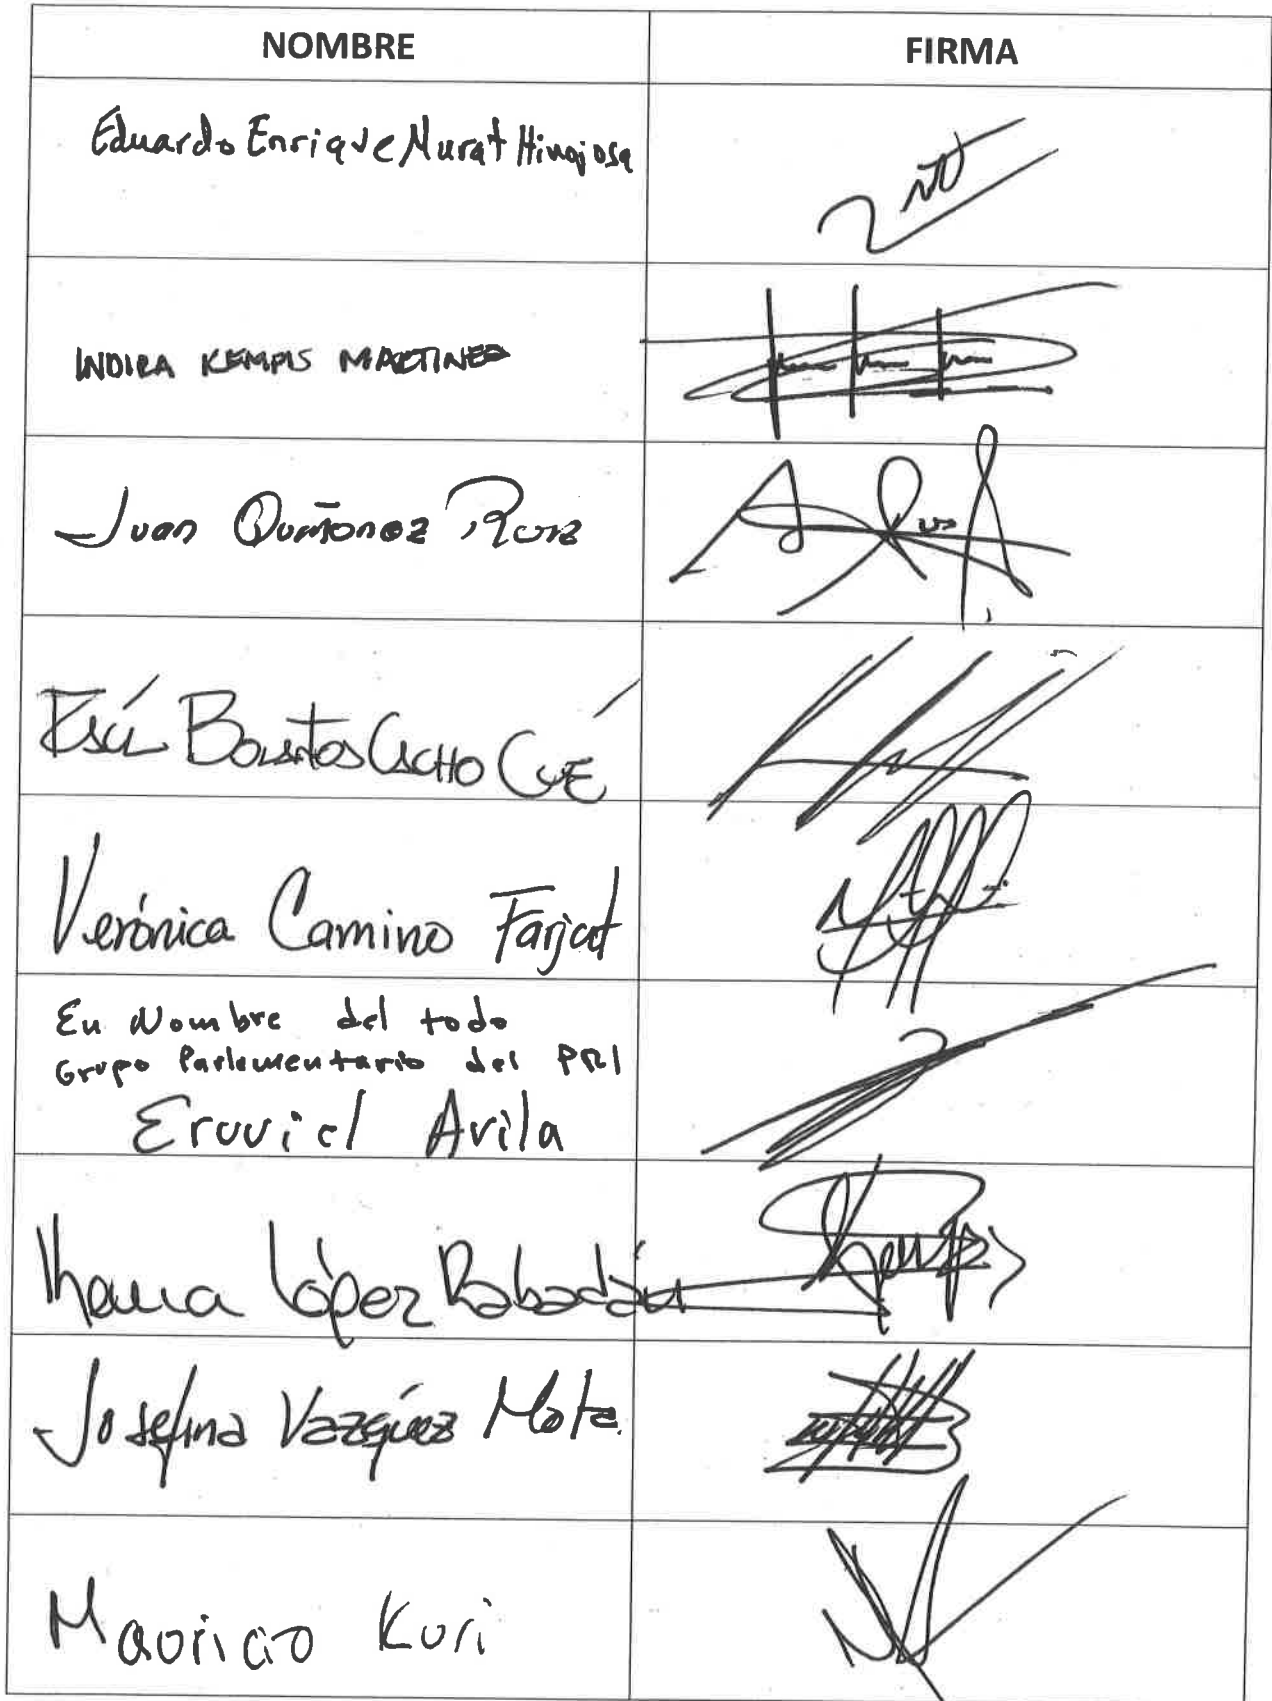 NOMBRE
FIRMA
Eduardo Enrique Murat Hinojosa
INDIRA KEMPIS MARTINEZ
Juan Quiñonez Ruiz
BOLAÑOS CACHO CUÉ
Verónica Camino Farjat
En Nombre del todo
Grupo Parlamentario del PRI
Eruviel Avila
Kenia López Rabadán
Josefina Vazquez Mota
Mauricio Kuri